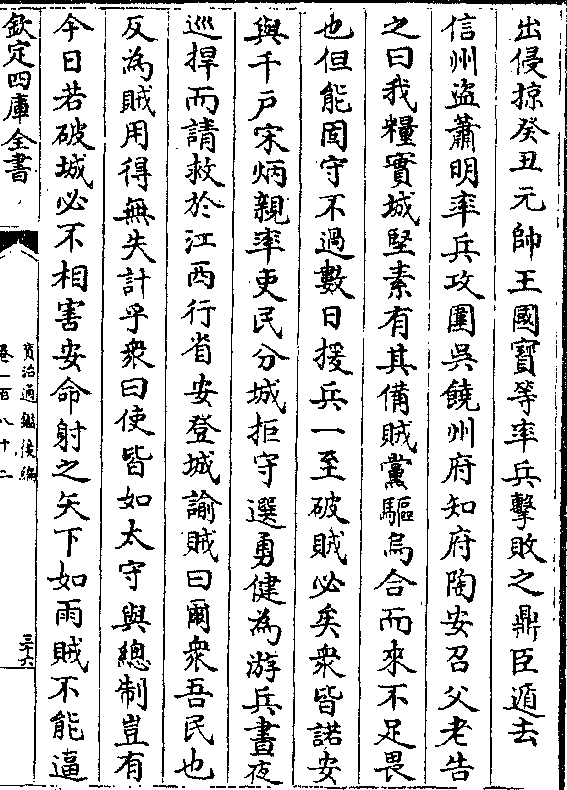 出侵掠癸丑元帥王國寶等率兵擊敗之鼎臣遁去
信州盜蕭明率兵攻圍吳饒州府知府陶安召父老告
之曰我糧實城堅素有其備賊黨驅烏合而來不足畏
也但能固守不過數日援兵一至破賊必矣衆皆諾安
與千戸宋炳親率吏民分城拒守選勇健為游兵晝夜
巡捍而請救於江西行省安登城諭賊曰爾衆吾民也
反為賊用得無失計乎衆曰使皆如太守與總制豈有
今日若破城必不相害安命射之矢下如雨賊不能逼
欽定四庫全書
資治通鑑後編
卷一百八十二
三十六